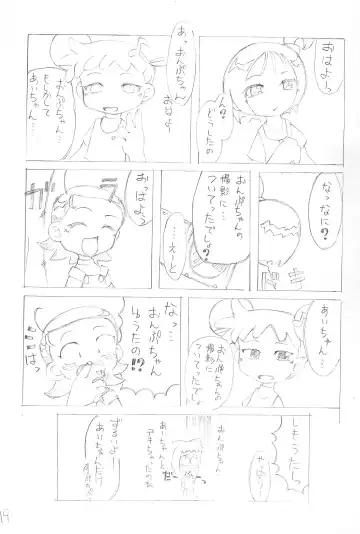 おはよう
ん?
どうしたの
あっ
おんぷちゃん
おはよ
おんぷちゃん…
もしかして
あいちゃん…
なっなに?
おんぷちゃんの
撮影に
ついてったでしょ?
……えーと
おっはよっ
あいちゃん…
おんぷちゃんの
撮影に
ついてったでしょ
なっ…
おんぷちゃん
ゆうたの!?
はっ
しもうたっ
おんぷちゃん
あいちゃんと
ずるいよー
あいちゃんだけ
19